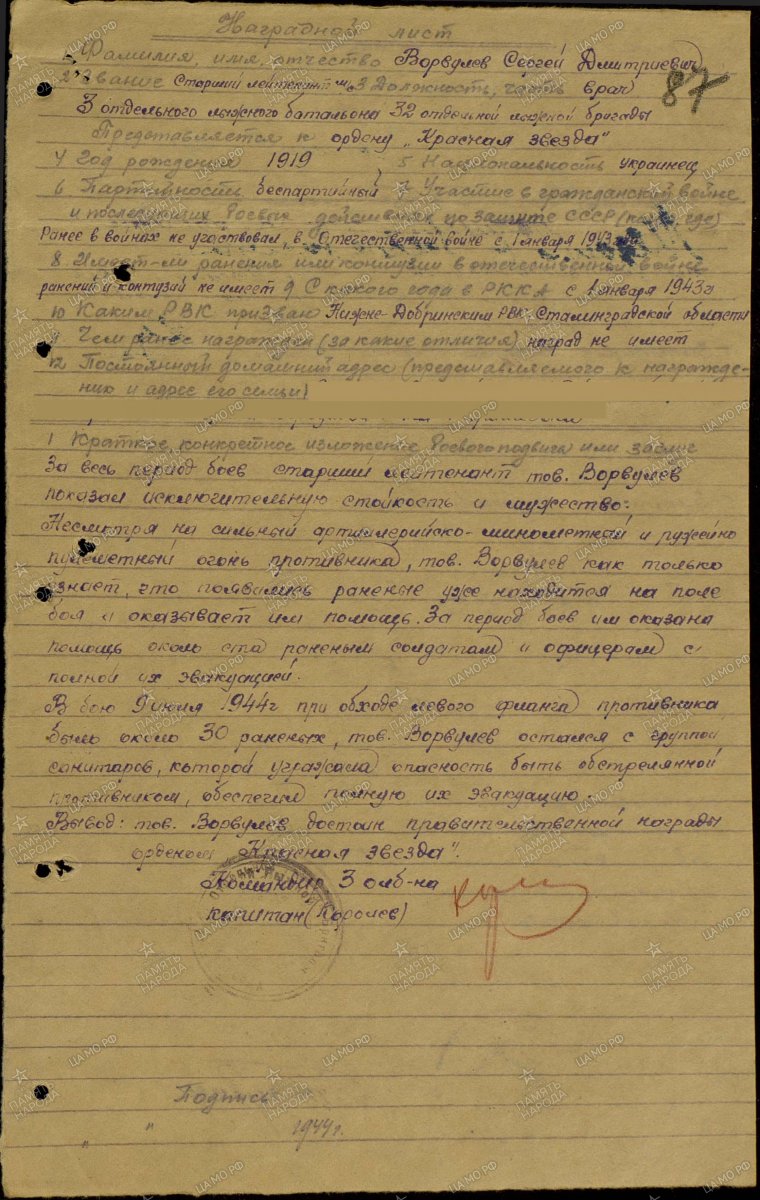 Наградной лист
Фамилия, имя, отчество Ворвулев Сергей Дмитриевич
2 Звание Старший лейтенант м/с 3 Должность, часть врач
87
3 отдельного лыжного батальона 32 отдельной лыжной бригады
Представляется к ордену „Красная звезда"
4 Год рождения 1919 5 Национальность украинец
6 Партийность беспартийный 7 Участие в гражданской войне
и последующих боевых действиях по защите СССР (когда, где)
Ранее в войнах не участвовал, в Отечественной войне с 1 января 1943 года
8. Имеет-ли ранения или контузии в отечественной войне
ранений и контузий не имеет 9 С какого года в РККА с 1 января 1943г
10 Каким РВК призван Нижне-Добринским РВК Сталинградской области
11 Чем ранее награжден (за какие отличия) наград не имеет
12 Постоянный домашний адрес (представляемого к награжде-
нию и адрес его семьи)
1 Краткое конкретное изложение боевого подвига или заслуг
За весь период боев старший лейтенант тов. Ворвулев
показал исключительную стойкость и мужество.
Несмотря на сильный артиллерийско-минометный и ружейно
пулеметный огонь противника, тов. Ворвулев как только
узнает, что появились раненые уже находится на поле
боя и оказывает им помощь. За период боев им оказана
помощь около ста раненым солдатам и офицерам с
полной их эвакуацией.
В бою 9 июля 1944г при обходе левого фланга противника
было около 30 раненых, тов. Ворвулев остался с группой
санитаров, которой угрожала опасность быть обстрелянной
противником, обеспечил полную их эвакуацию.
Вывод: тов. Ворвулев достоин правительственной награды
орденом „Красная звезда".
Командир 3 олб-на
капитан (Королев)
Подпись
„ " 1944г.
ПАМЯТЬ НАРОДА
ЦАМО.РФ